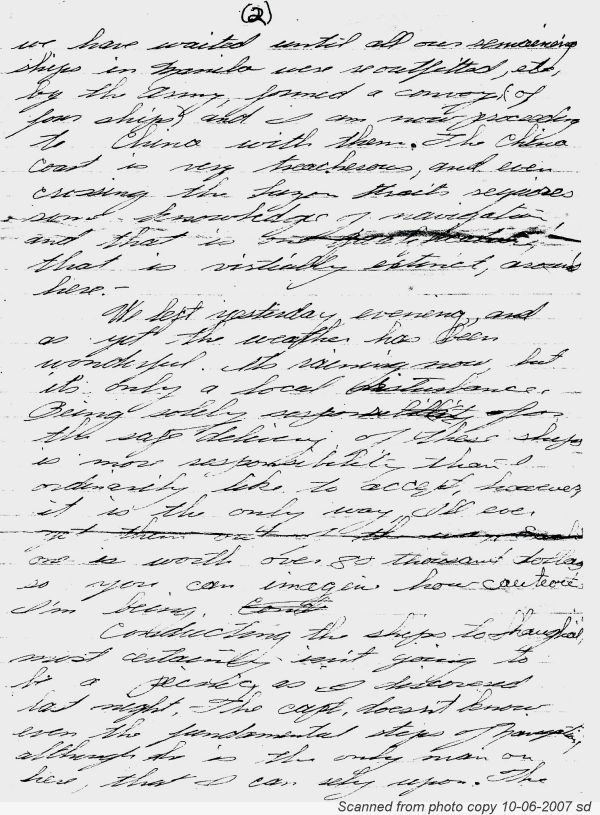 (2)
we have waited until all our remaining
ships in Manila were reoutfitted, etc,
by the Army, formed a convoy (of
four ships) and I am now proceeding
to China with them. The China
coast is very treacherous, and even
crossing the Luzon straits requires
some knowledge of navigation
and that is
that is virtually extinct, around
here. -
We left yesterday evening, and
as yet the weather has been
wonderful. It's raining now but
it's only a local disturbance.
Being solely responsible for
the safe delivery of these ships
is more responsibility than I
ordinarily like to accept, however
it is the only way I'll ever
get them out of the way. Each
one is worth over 80 thousand dollars
so you can imagin how
I'm being.
Conducting the ships to Shanghai,
most certainly isn't going to
be a picnic as I discovered
last night. The capt. doesn't know
even the fundamental steps of
although he is the only man on
here, that I can rely upon. The
Scanned from photo copy 10-06-2007 sd